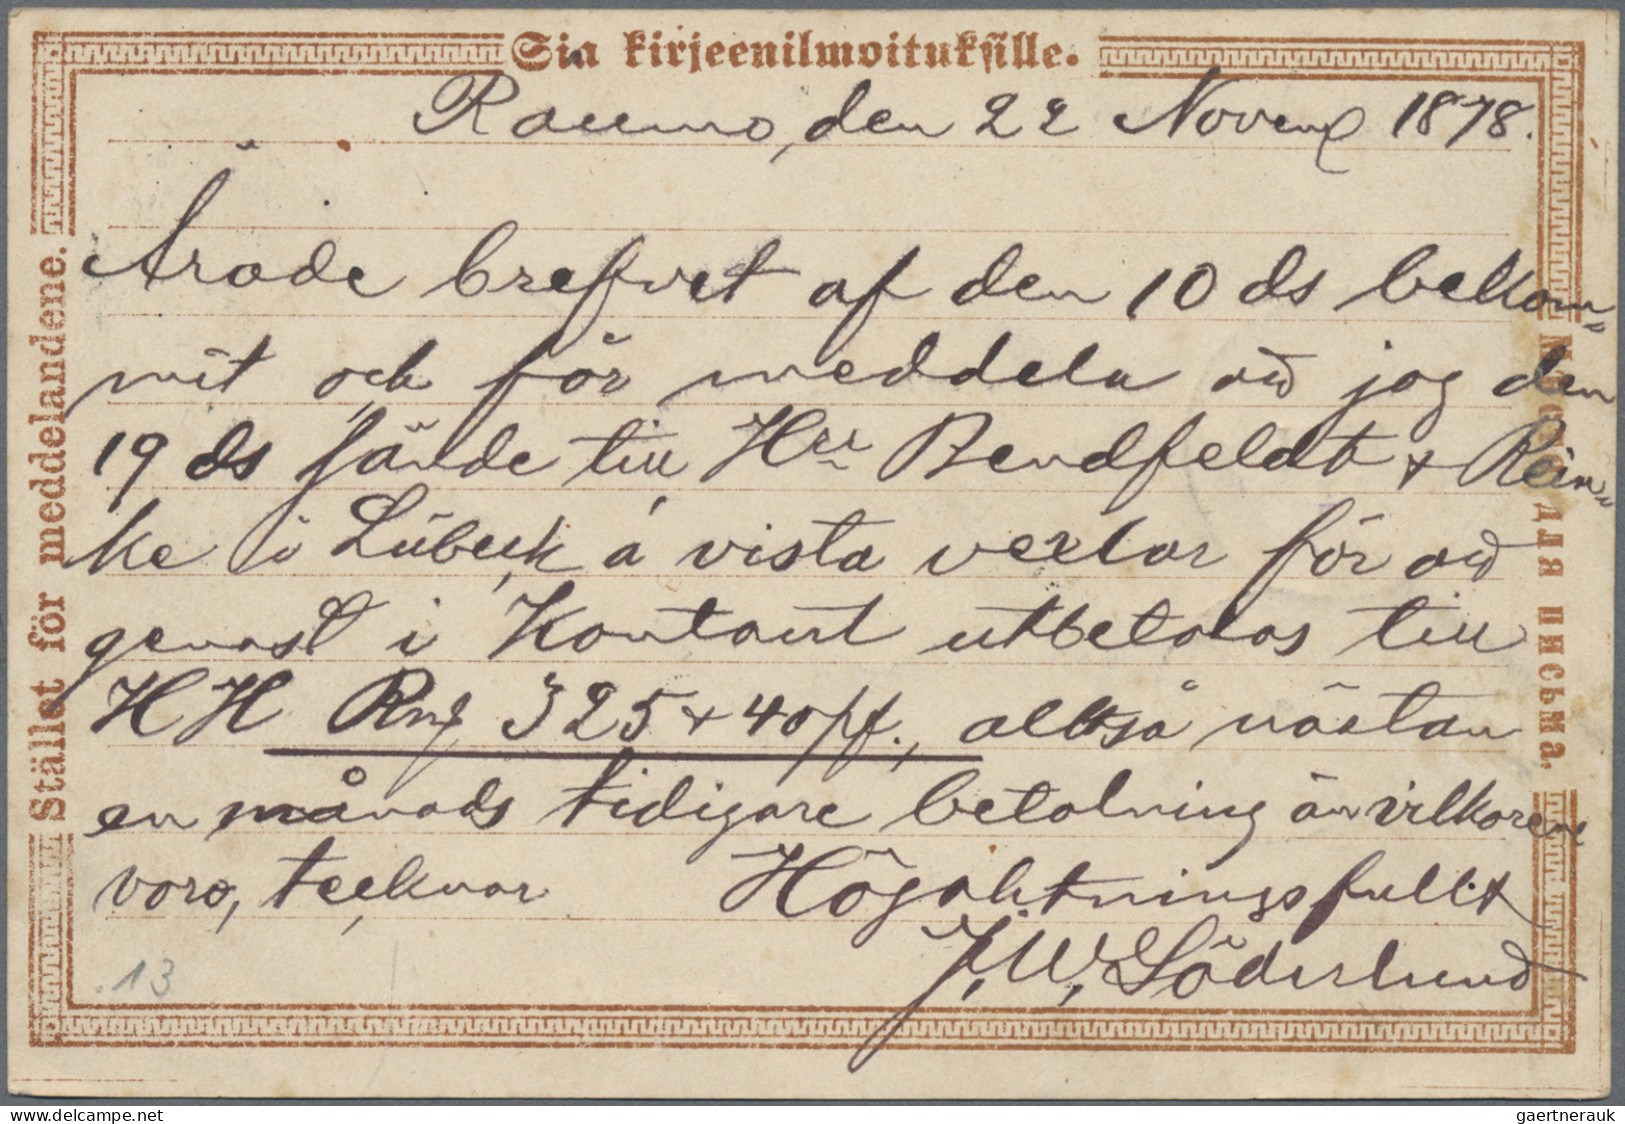 Sia kirjeenilmoituksille.
Raumo, den 22 Novemb 1878.
Ärade brefvet af den 10 ds bekom-
mit och för meddela att jag den
19 ds sände till Hrr Bendfeldt & Rein-
ke i Lübeck, á vista vexlar för att
genast i Kontant utbetalas till
HH Rmk 325 & 40 pf., alltså nästan
en månads tidigare betalning än vilkoren
voro, tecknar Högaktningsfullt
J. W. Söderlund
.13
Stället för meddelandene.
Мѣсто для письма.
gaertnerauk @ delcampe.net